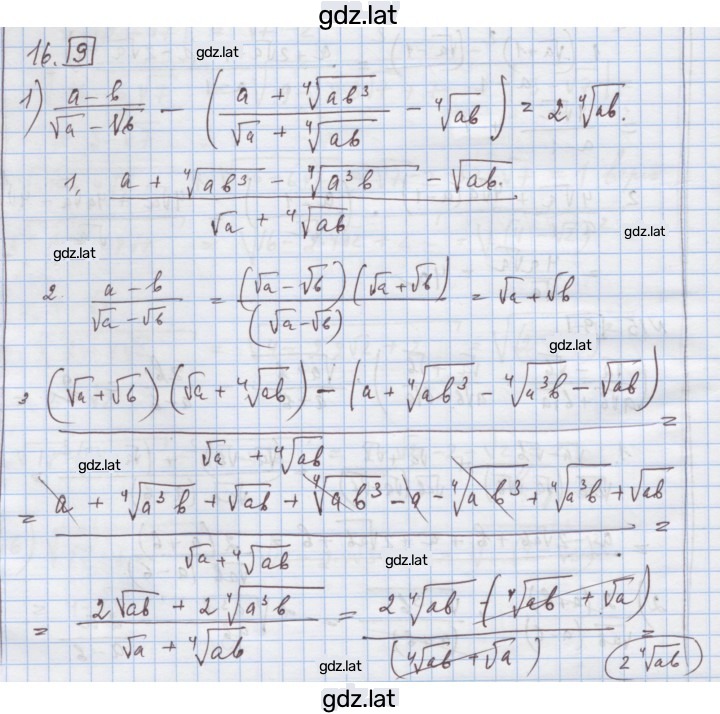 gdz.lat
16. 9
gdz.lat
1) (a-b)/(√a - √b) - ((a + ⁴√(ab³))/(√a + ⁴√(ab)) - ⁴√(ab)) = 2 ⁴√(ab).
1. (a + ⁴√(ab³) - ⁴√(a³b) - √(ab).)/(√a + ⁴√(ab))
gdz.lat
gdz.lat
2. (a - b)/(√a - √b) = ((√a - √b)(√a + √b))/((√a - √b)) = √a + √b
gdz.lat
3 ((√a + √b)(√a + ⁴√(ab)) - (a + ⁴√(ab³) - ⁴√(a³b) - √(ab)))/(√a + ⁴√(ab)) =
gdz.lat
= (a + ⁴√(a³b) + √(ab) + ⁴√(ab³) - a - ⁴√(ab³) + ⁴√(a³b) + √(ab))/(√a + ⁴√(ab)) =
gdz.lat
= (2√(ab) + 2 ⁴√(a³b))/(√a + ⁴√(ab)) = (2 ⁴√(ab) (⁴√(ab) + √a))/((⁴√(ab) + √a)) = 2 ⁴√(ab)
gdz.lat
gdz.lat